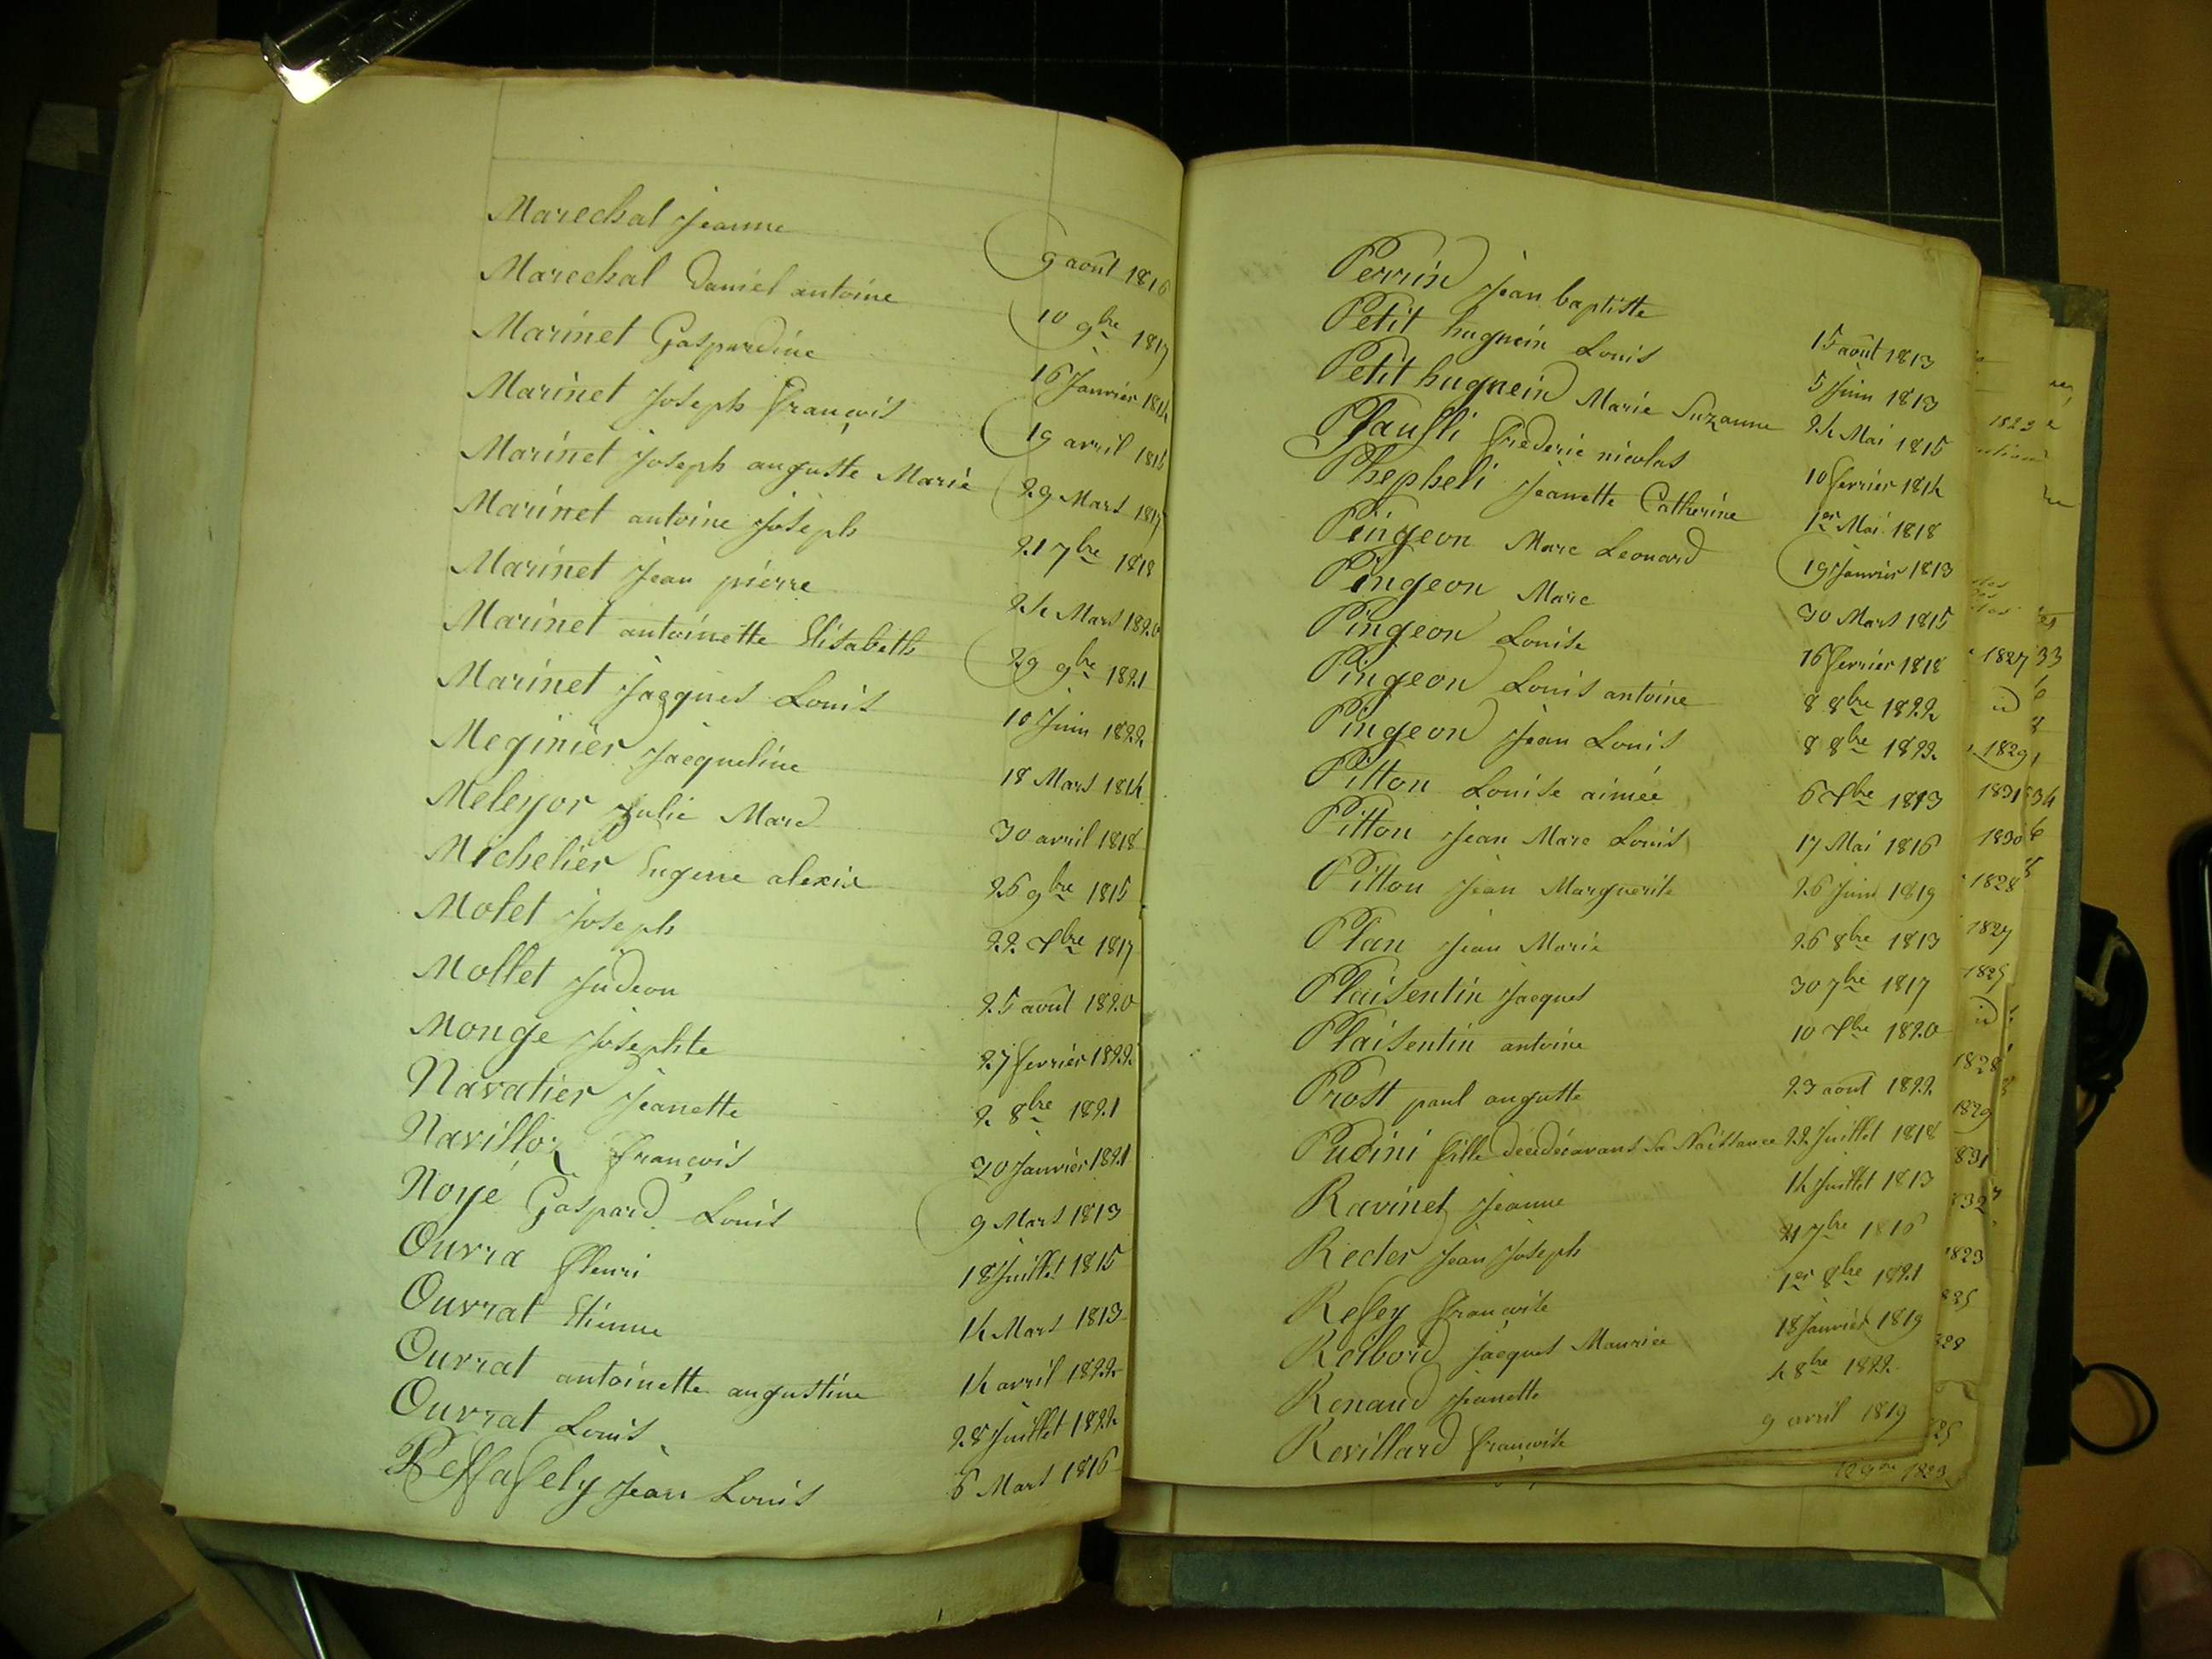 Marechal Jeanne 9 août 1816
Marechal Daniel antoine 10 9bre 1817
Marinet Gaspardine 16 Janvier 1814
Marinet Joseph françois 19 avril 1815
Marinet joseph auguste Marie 29 Mars 1817
Marinet antoine Joseph 21 7bre 1818
Marinet Jean pierre 24 Mars 1820
Marinet antoinette Elisabeth 29 9bre 1821
Marinet Jacques Louis 10 Juin 1822
Meginier Jacqueline 18 Mars 1814
Meleyor Julie Marc 30 avril 1818
Michelier Eugene alexis 26 9bre 1815
Molet Joseph 22 Xbre 1817
Mollet Judeon 25 août 1820
Monge Josephte 27 fevrier 1822
Navatier Jeanette 2 8bre 1821
Navilloz françois 30 Janvier 1821
Noyé Gaspard Louis 9 Mars 1813
Ouvra henri 18 Juillet 1815
Ouvrat Etienne 14 Mars 1813
Ouvrat antoinette augustine 14 avril 1822
Ouvrat Louis 28 Juillet 1824
Jean Louis 6 Mars 1816
Perrin Jean baptiste 15 août 1813
Petit huguein Louis 5 Juin 1813
Petit huguein Marie Suzanne 24 Mai 1815
Pfaufli frederic nicolas 10 fevrier 1814
Phepheli Jeanette Catherine 1er Mai 1818
Pingeon Marc Leonard 19 Janvier 1813
Pingeon Marc 30 Mars 1815
Pingeon Louise 16 fevrier 1818
Pingeon Louis antoine 8 8bre 1822
Pingeon Jean Louis 8 8bre 1822
Pitton Louise aimée 6 Xbre 1813
Pitton Jean Marc Louis 17 Mai 1816
Pitton Jean Marguerite 26 Juin 1819
Plan Jean Marie 26 8bre 1813
Plaisentin Jacques 30 7bre 1817
Plaisentin antoine 10 Xbre 1820
Prost paul auguste 23 aout 1822
Pudini fille decédée avant sa Naissance 22 Juillet 1818
Ravinet Jeanne 14 Juillet 1813
Recter Jean Joseph 21 7bre 1816
Resey françoise 1er 8bre 1821
Reibord jacques Maurice 18 Janvier 1819
Renaud Jeanette 4 8bre 1822
Revillard françoise 9 avril 1819
1823
1827
1829
1831
1830
1828
1827
1825
1828
1829